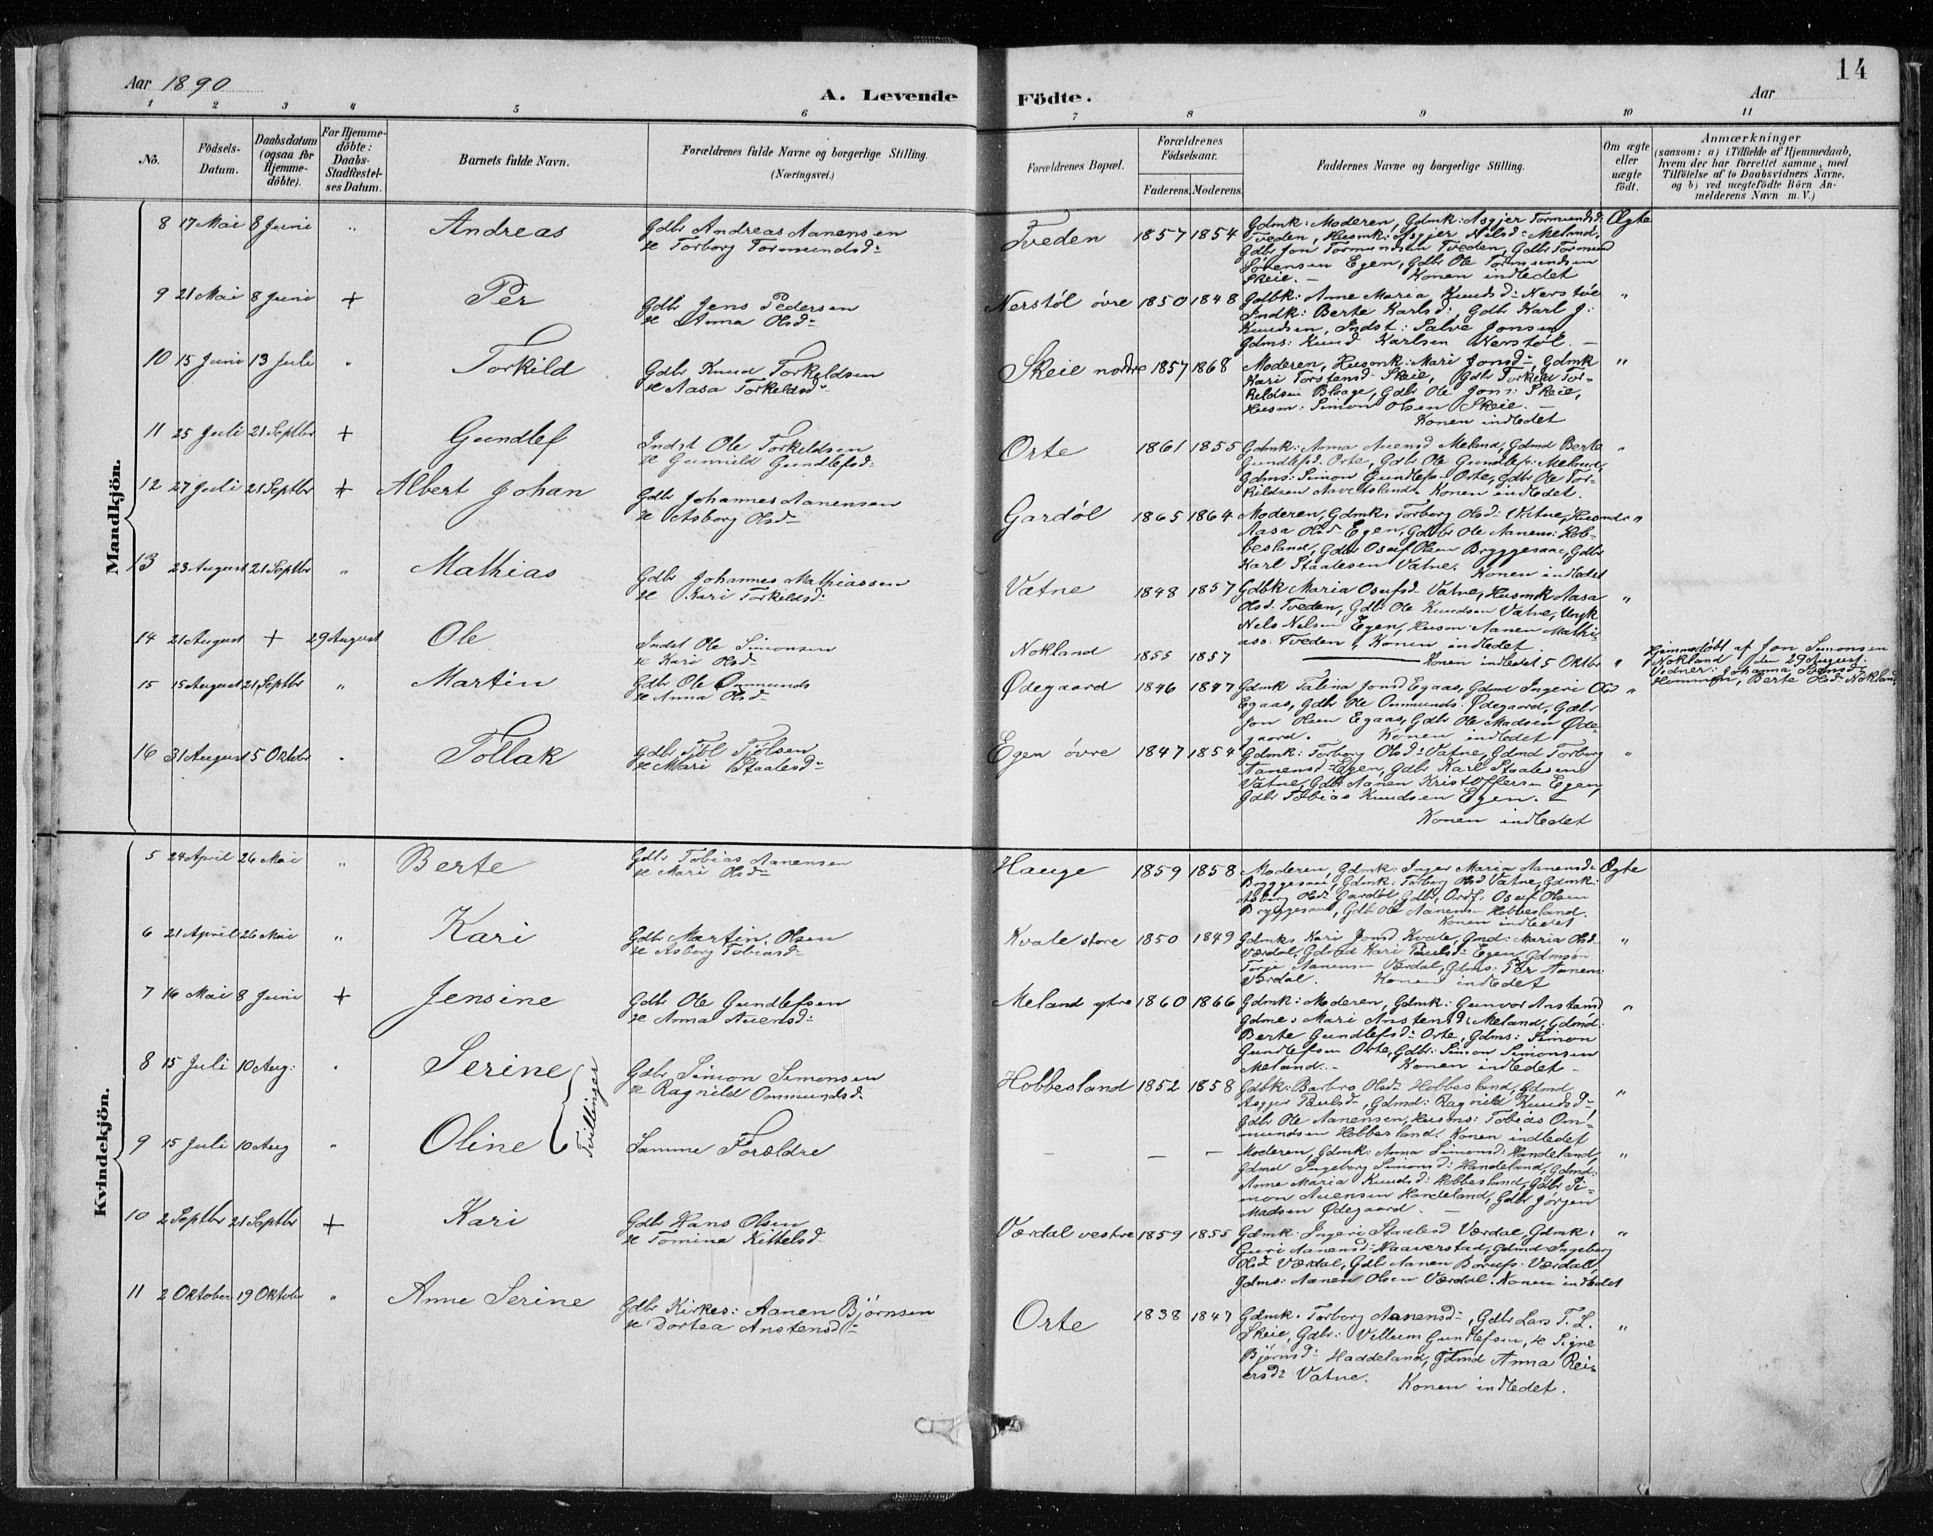 Aar 1890
A. Levende Födte.
14
Aar
1 2 3 4 5 6 7 8 9 10 11
No.
Födsels-Datum.
Daabsdatum (ogsaa for Hjemme-döbte).
For Hjemme-döbte: Daabs-Stadfæstel-ses Datum.
Barnets fulde Navn.
Forældrenes fulde Navne og borgerlige Stilling. (Næringsvei.)
Forældrenes Bopæl.
Forældrenes Födselsaar.
Faderens. Moderens.
Faddernes Navne og borgerlige Stilling.
Om ægte eller uægte født.
Anmærkninger
(saasom: a) i Tilfælde af Hjemmedaab,
hvem der har forrettet samme, med
Tilföielse af to Daabsvidners Navne,
og b) ved uægtefödte Börn An-
melderens Navn m. V.)
Mandkjön.
8 17 Mai 8 Juni " Andreas
Gdbr Andreas Aanensen
Torborg Tormundsd:
Tveden 1857 1854
Gdmk: Moderen, Gdmk: Asgjer Tormundsd:
Tveden, Husmk: Asgjer Nilsd: Meland,
Gdbr Jon Tormundsen Tveden, Gdbr Tormund
Sørensen Egen, Gdbr Ole Tormundsen
Skeie. — Konen indledet
Ægte
9 21 Mai 8 Juni + Per
Gdbr Jens Pedersen
Anna Olsd:
Nerstøl øvre 1850 1848
Gdbk: Anne Maria Knudsd: Nerstøl
Indk: Berte Karlsd, Gdbr Karl J:
Knudsen, Indst: Salve Jonsen
Gdms: Knud Karlsen Nerstøl. —
"
10 15 Juni 13 Juli " Torkild
Gdbr Knud Torkildsen
Aasa Torkildsd:
Skeie nordre 1857 1868
Moderen, Husmk: Mari Jonsd:, Gdmk
Kari Torstensd: Skeie, Gdbr Torkild Tor-
kildsen Bhage, Gdbr Ole Jons: Skeie,
Husm: Simon Olsen Skeie. —
Konen indledet
"
11 25 Juli 21 Septbr + Gundlef
Indst Ole Torkildsen
Gunnild Gundlefsd:
Orte 1861 1855
Gdmk: Anna Auensd Meland, Gdmd Berte
Gundlefsd: Orte, Gdbr Ole Gundlefs: Meland,
Gdms: Simon Gundlefs: Orte, Gdbr Ole Tor-
kildsen Konen indledet.
"
12 27 Juli 21 Septbr + Albert Johan
Gdbr Johannes Aanensen
Asborg Olsd:
Gardøl 1865 1864
Moderen, Gdmk: Torborg Olsd: Vatne, Husmd:
Aasa Olsd Egen, Gdbr Ole Aanens: Hob-
besland, Gdbr Osuf Olsen Bryggesaae, Gdbr
Karl Staalesen Vatne. Konen indledet
"
13 23 August 21 Septbr " Mathias
Gdbr Johannes Mathiassen
Kari Torkildsd:
Vatne 1848 1857
Gdbk Maria Osufsd: Vatne, Husmk Aasa
Olsd: Tveden, Gdbr Ole Knudsen Vatne, Ungk
Nels Nelsen Egen, Husm: Aanen Mathi-
ass: Tveden, Konen indledet
"
14 21 August + 29 August Ole
Indst Ole Simonsen
Kari Olsd:
Nokland 1855 1857
Konen indledet 5 Oktbr
"
Hjemmedøbt af Jon Simonsen
Nokland den 29 August.
Vidner: Johanna
Berte Olsd: Nokland
15 15 August 21 Septbr " Martin
Gdbr Ole Ommunds
Anna Olsd:
Ødegaard 1846 1847
Gdmk Talina Jonsd Egaas, Gdmd Ingeri Olsd
Egaas, Gdbr Ole Ommunds: Ødegaard, Gdbr
Jon Olsen Egaas, Gdbr Ole Madsen Øde-
gaard. Konen indledet
"
16 31 August 5 Oktober " Tollak
Gdbr Tøl Tjølsen
Mari Staalesd:
Egen øvre 1847 1854
Gdmk: Torborg Olsd: Vatne, Gdmd Torborg
Aanens: Egen, Gdbr Karl Staalesen
Vatne, Gdbr Aanen Kristoffersen Egen,
Gdbr Tobias Knudsen Egen. —
Konen indledet
"
Kvindekjön.
5 24 April 26 Mai " Berte
Gdbr Tobias Aanensen
Mari Olsd:
Hauge 1859 1858
Moderen, Gdmk: Inger Maria Aanensd:
Bryggesaae, Gdmk: Torborg Olsd Vatne, Gdmk:
Asborg Olsd: Gardøl, Gdbr, Ordf. Osuf Olsen
Bryggesaae, Gdbr Ole Aanens: Hobbesland.
Konen indledet
Ægte
6 21 April 26 Mai " Kari
Gdbr Martin Olsen
Asborg Tobiasd:
Kvale store 1850 1849
Gdmk: Kari Jonsd Kvale, Gmd: Maria Olsd:
Værdal, Gdmd Kari Paulsd: Egen, Gdmsøn
Torje Aanens: Værdal, Gdms: Per Aanens:
Værdal. Konen indledet
"
7 16 Mai 8 Juni + Jensine
Gdbr Ole Gundlefsen
Anna Auensd:
Meland ytre 1860 1866
Gdmk: Moderen, Gdmk: Gunvor Anstensd
Gdme: Mari Anstensd: Meland, Gdmd:
Berte Gundlefsd: Orte, Gdms: Simon
Gundlefsen Orte, Gdbr: Simon Simonsen
Meland. — Konen indledet —
"
8 15 Juli 10 Aug: " Serine
Tvillinger
Gdbr Simon Simonsen
Ragnild Ommundsd:
Hobbesland 1852 1858
Gdbk: Barbro Olsd: Hobbesland, Gdmd
Asgjer Paulsd:, Gdmd: Ragnild Knudsd:
Gdbr Ole Aanensen, Husms: Tobias Om-
mundsen Hobbesland. Konen indledet
"
9 15 Juli 10 Aug " Oline
Samme Forældre
— — —
Moderen, Gdmk: Anna Simonsd: Handeland,
Gdmd Ingeborg Simonsd: Handeland, Gdmd:
Anne Maria Knudsd: Hobbesland, Gdbr Si-
mon Auensen Handeland, Gdbr Jørgen
Madsen Ødegaard. —
"
10 2 Septbr 21 Septbr + Kari
Gdbr Hans Olsen
Tomine Kittelsd
Værdal vestre 1859 1855
Gdmk: Ingeri Staalesd Værdal, Gdmk:
Guri Aanensd: Haaverstad, Gdmd Ingeborg
Olsd Værdal, Gdbr Aanen Værdal,
Gdms: Aanen Olsen Værdal. Konen indledet
"
11 2 Oktober 19 Oktober " Anne Serine
Gdbr Kirkes: Aanen Bjørnsen
Dortea Anstensd:
Orte 1838 1847
Gdmk. Torborg Aanensd:, Gdbr Lars T. L.
Skeie, Gdbr: Villum Gundlefsen, Signe
Bjørnsd: Haddeland, Gdmd Anna Rei-
ersd: Vatne. Konen indledet.
"